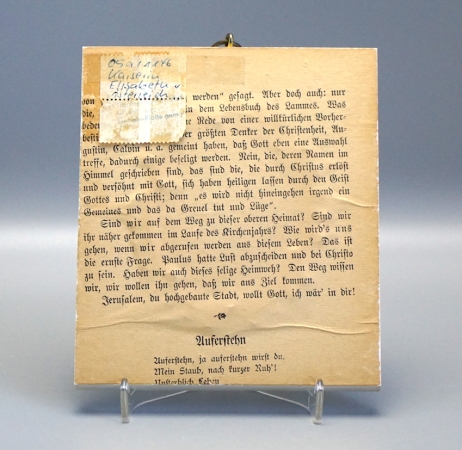 Kaiserin
Elisabeth v.
Österreich
von werden“ gesagt. Aber doch auch: nur
die, in dem Lebensbuch des Lammes. Was
eine Rede von einer willkürlichen Vorher-
der größten Denker der Christenheit, Au-
gustin, Calvin u. a. gemeint haben, daß Gott eben eine Auswahl
treffe, dadurch einige beseligt werden. Nein, die, deren Namen im
Himmel geschrieben sind, das sind die, die durch Christus erlöst
und versöhnt mit Gott, sich haben heiligen lassen durch den Geist
Gottes und Christi; denn „es wird nicht hineingehen irgend ein
Gemeines und das da Greuel tut und Lüge“.
Sind wir auf dem Weg zu dieser oberen Heimat? Sind wir
ihr näher gekommen im Laufe des Kirchenjahrs? Wie wird's uns
gehen, wenn wir abgerufen werden aus diesem Leben? Das ist
die ernste Frage. Paulus hatte Lust abzuscheiden und bei Christo
zu sein. Haben wir auch dieses selige Heimweh? Den Weg wissen
wir, wir wollen ihn gehen, daß wir ans Ziel kommen.
Jerusalem, du hochgebaute Stadt, wollt Gott, ich wär' in dir!
Auferstehn
Auferstehn, ja auferstehn wirst du,
Mein Staub, nach kurzer Ruh'!
Unsterblich Leben